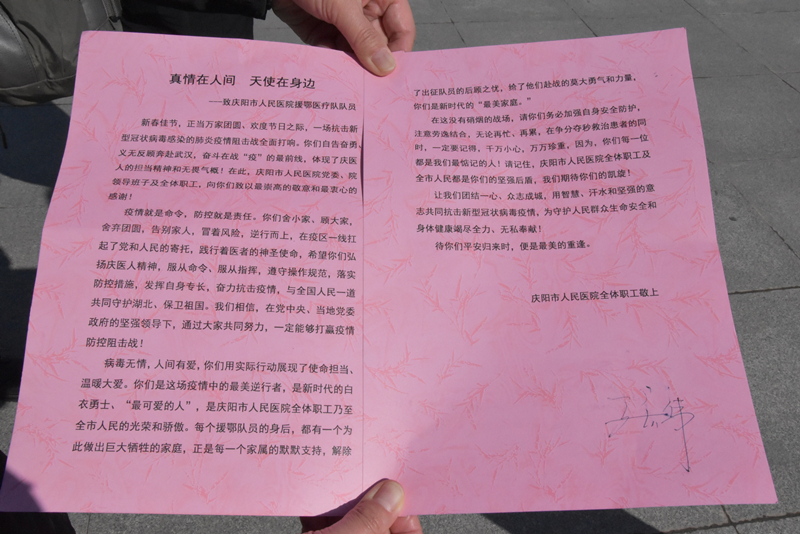 真情在人间 天使在身边
——致庆阳市人民医院援鄂医疗队队员
新春佳节，正当万家团圆、欢度节日之际，一场抗击新
型冠状病毒感染的肺炎疫情阻击战全面打响。你们自告奋勇、
义无反顾奔赴武汉，奋斗在战“疫”的最前线，体现了庆医
人的担当精神和无畏气概！在此，庆阳市人民医院党委、院
领导班子及全体职工，向你们致以最崇高的敬意和最衷心的
感谢！
疫情就是命令，防控就是责任。你们舍小家、顾大家，
舍弃团圆，告别家人，冒着风险，逆行而上，在疫区一线扛
起了党和人民的寄托，践行着医者的神圣使命，希望你们弘
扬庆医人精神，服从命令、服从指挥，遵守操作规范，落实
防控措施，发挥自身专长，奋力抗击疫情，与全国人民一道
共同守护湖北、保卫祖国。我们相信，在党中央、当地党委
政府的坚强领导下，通过大家共同努力，一定能够打赢疫情
防控阻击战！
病毒无情，人间有爱，你们用实际行动展现了使命担当、
温暖大爱。你们是这场疫情中的最美逆行者，是新时代的白
衣勇士、“最可爱的人”，是庆阳市人民医院全体职工乃至
全市人民的光荣和骄傲。每个援鄂队员的身后，都有一个为
此做出巨大牺牲的家庭，正是每一个家属的默默支持，解除
了出征队员的后顾之忧，给了他们赴战的莫大勇气和力量，
你们是新时代的“最美家庭。”
在这没有硝烟的战场，请你们务必加强自身安全防护，
注意劳逸结合，无论再忙、再累，在争分夺秒救治患者的同
时，一定要记得，千万小心，万万珍重，因为，你们每一位
都是我们最惦记的人！请记住，庆阳市人民医院全体职工及
全市人民都是你们的坚强后盾，我们期待你们的凯旋！
让我们团结一心、众志成城，用智慧、汗水和坚强的意
志共同抗击新型冠状病毒疫情，为守护人民群众生命安全和
身体健康竭尽全力、无私奉献！
待你们平安归来时，便是最美的重逢。
庆阳市人民医院全体职工敬上